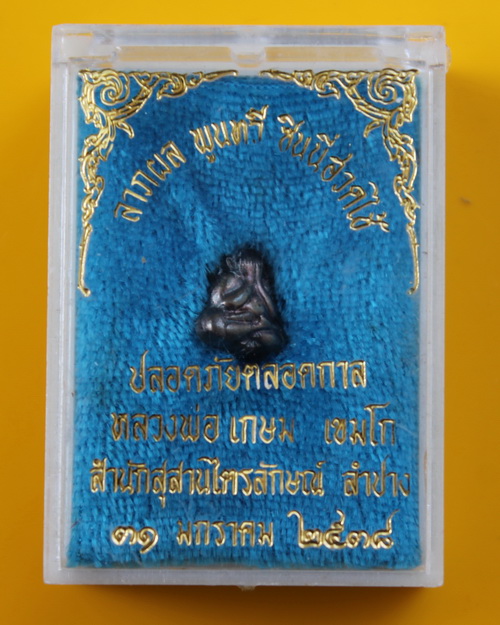 ลาภผล พูนทวี ชินบัญชรให้
ปลอดภัยตลอดกาล
หลวงพ่อ เกษม เขมโก
สำนักสุสานไตรลักษณ์ ลำปาง
๓๑ มกราคม ๒๕๓๘